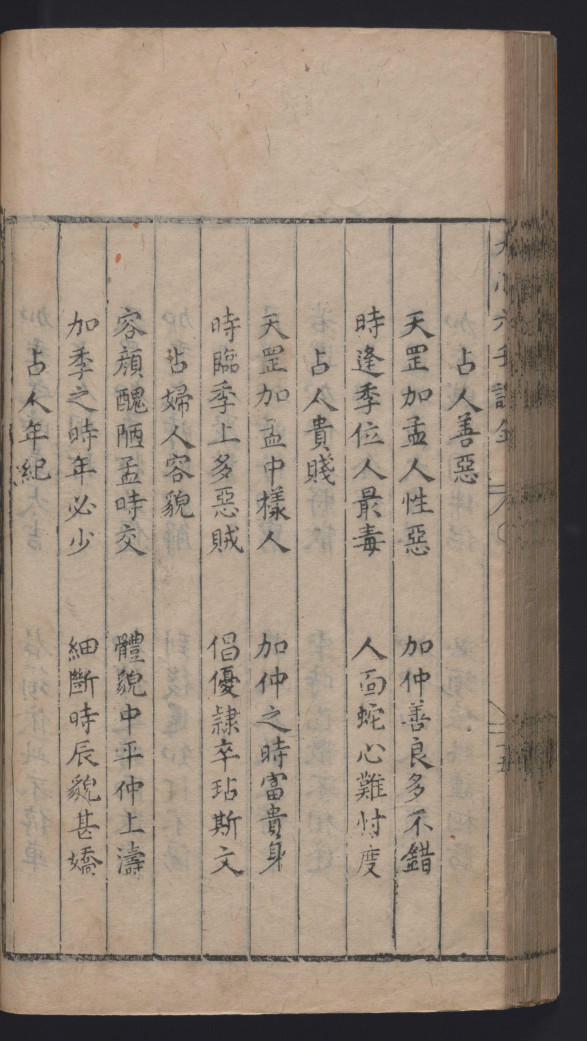 占人善惡
天罡加孟人性惡 加仲善良多不錯
時逢季位人最毒 人面蛇心難忖度
占人貴賤
天罡加孟中樣人 加仲之時富貴身
時臨季上多惡賊 倡優隷卒玷斯文
占婦人容貌
容顏醜陋孟時交 體貌中平仲上濤
加季之時年必少 細斷時辰貌甚嬌
占人年紀